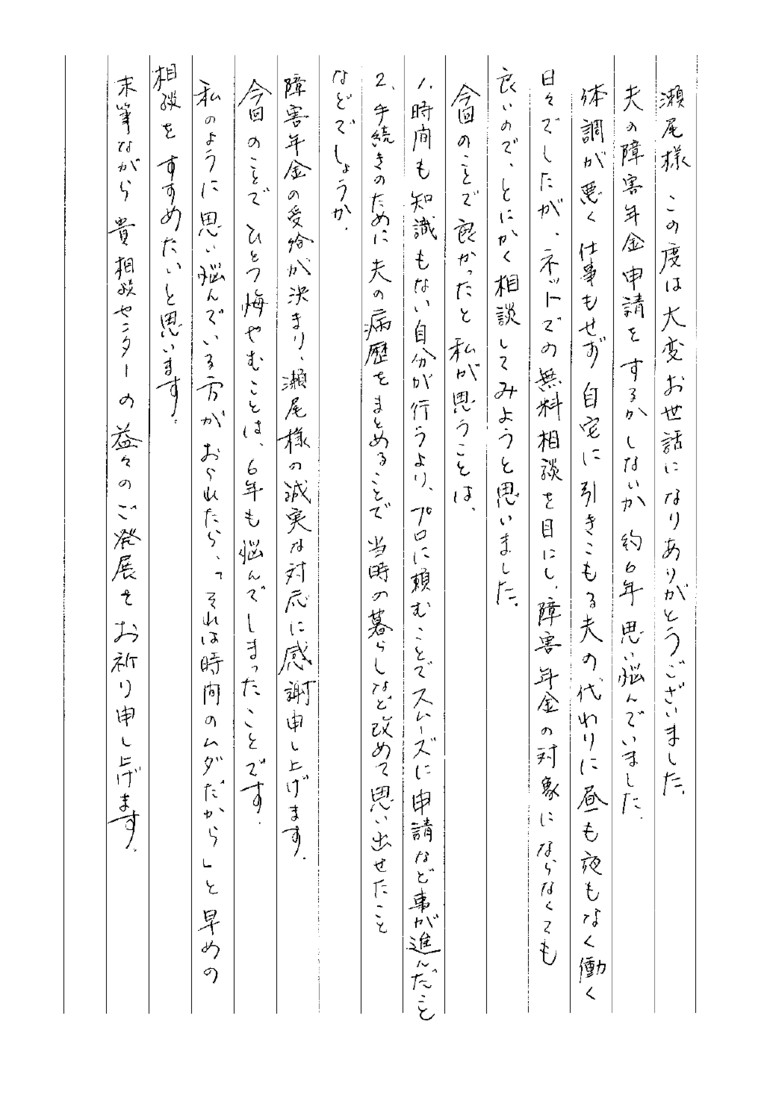 瀬尾様 この度は大変お世話になりありがとうございました。
夫の障害年金申請をするかしないか 約6年 思い悩んでいました。
体調が悪く 仕事もせず 自宅に引きこもる夫の代わりに昼も夜もなく働く
日々でしたが、ネットでの無料相談を目にし、障害年金の対象にならなくても
良いので、とにかく相談してみようと思いました。
今回のことで良かったと私が思うことは、
1、時間も知識もない自分が行うより、プロに頼むことでスムーズに申請など事が進んだこと
2、手続きのために夫の病歴をまとめることで当時の暮らしなど改めて思い出せたこと
などでしょうか。
障害年金の受給が決まり、瀬尾様の誠実な対応に感謝申し上げます。
今回のことでひとつ悔やむことは、6年も悩んでしまったことです。
私のように思い悩んでいる方がおられたら、「それは時間のムダだから」と早めの
相談をすすめたいと思います。
末筆ながら 貴相談センターの益々のご発展をお祈り申し上げます。